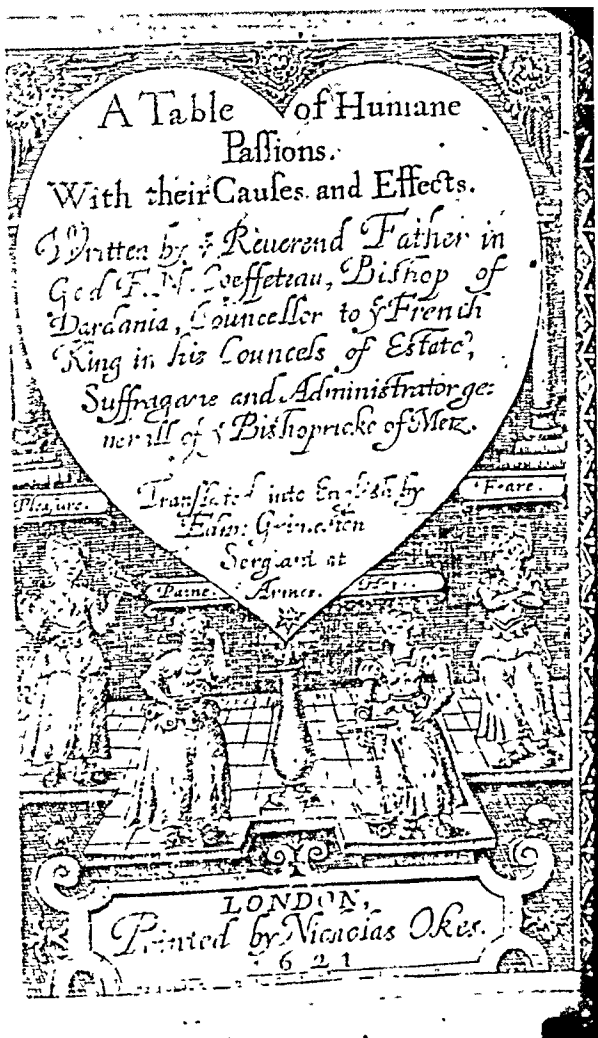 A Table of Humane
Paſſions.
With their Cauſes and Effects.
Written by yͤ Reuerend Father in
God F. N. Coeffeteau, Bishop of
Dardania, Councellor to yͤ French
King in his Councels of Estate,
Suffragane and Administrator ge:
nerall of yͤ Bishopricke of Metz.
Translated into English by
Edw: Grimeston
Sergiant at
Armes.
Pleasure.
Feare.
Paine.
LONDON,
Printed by Nicholas Okes.
1621